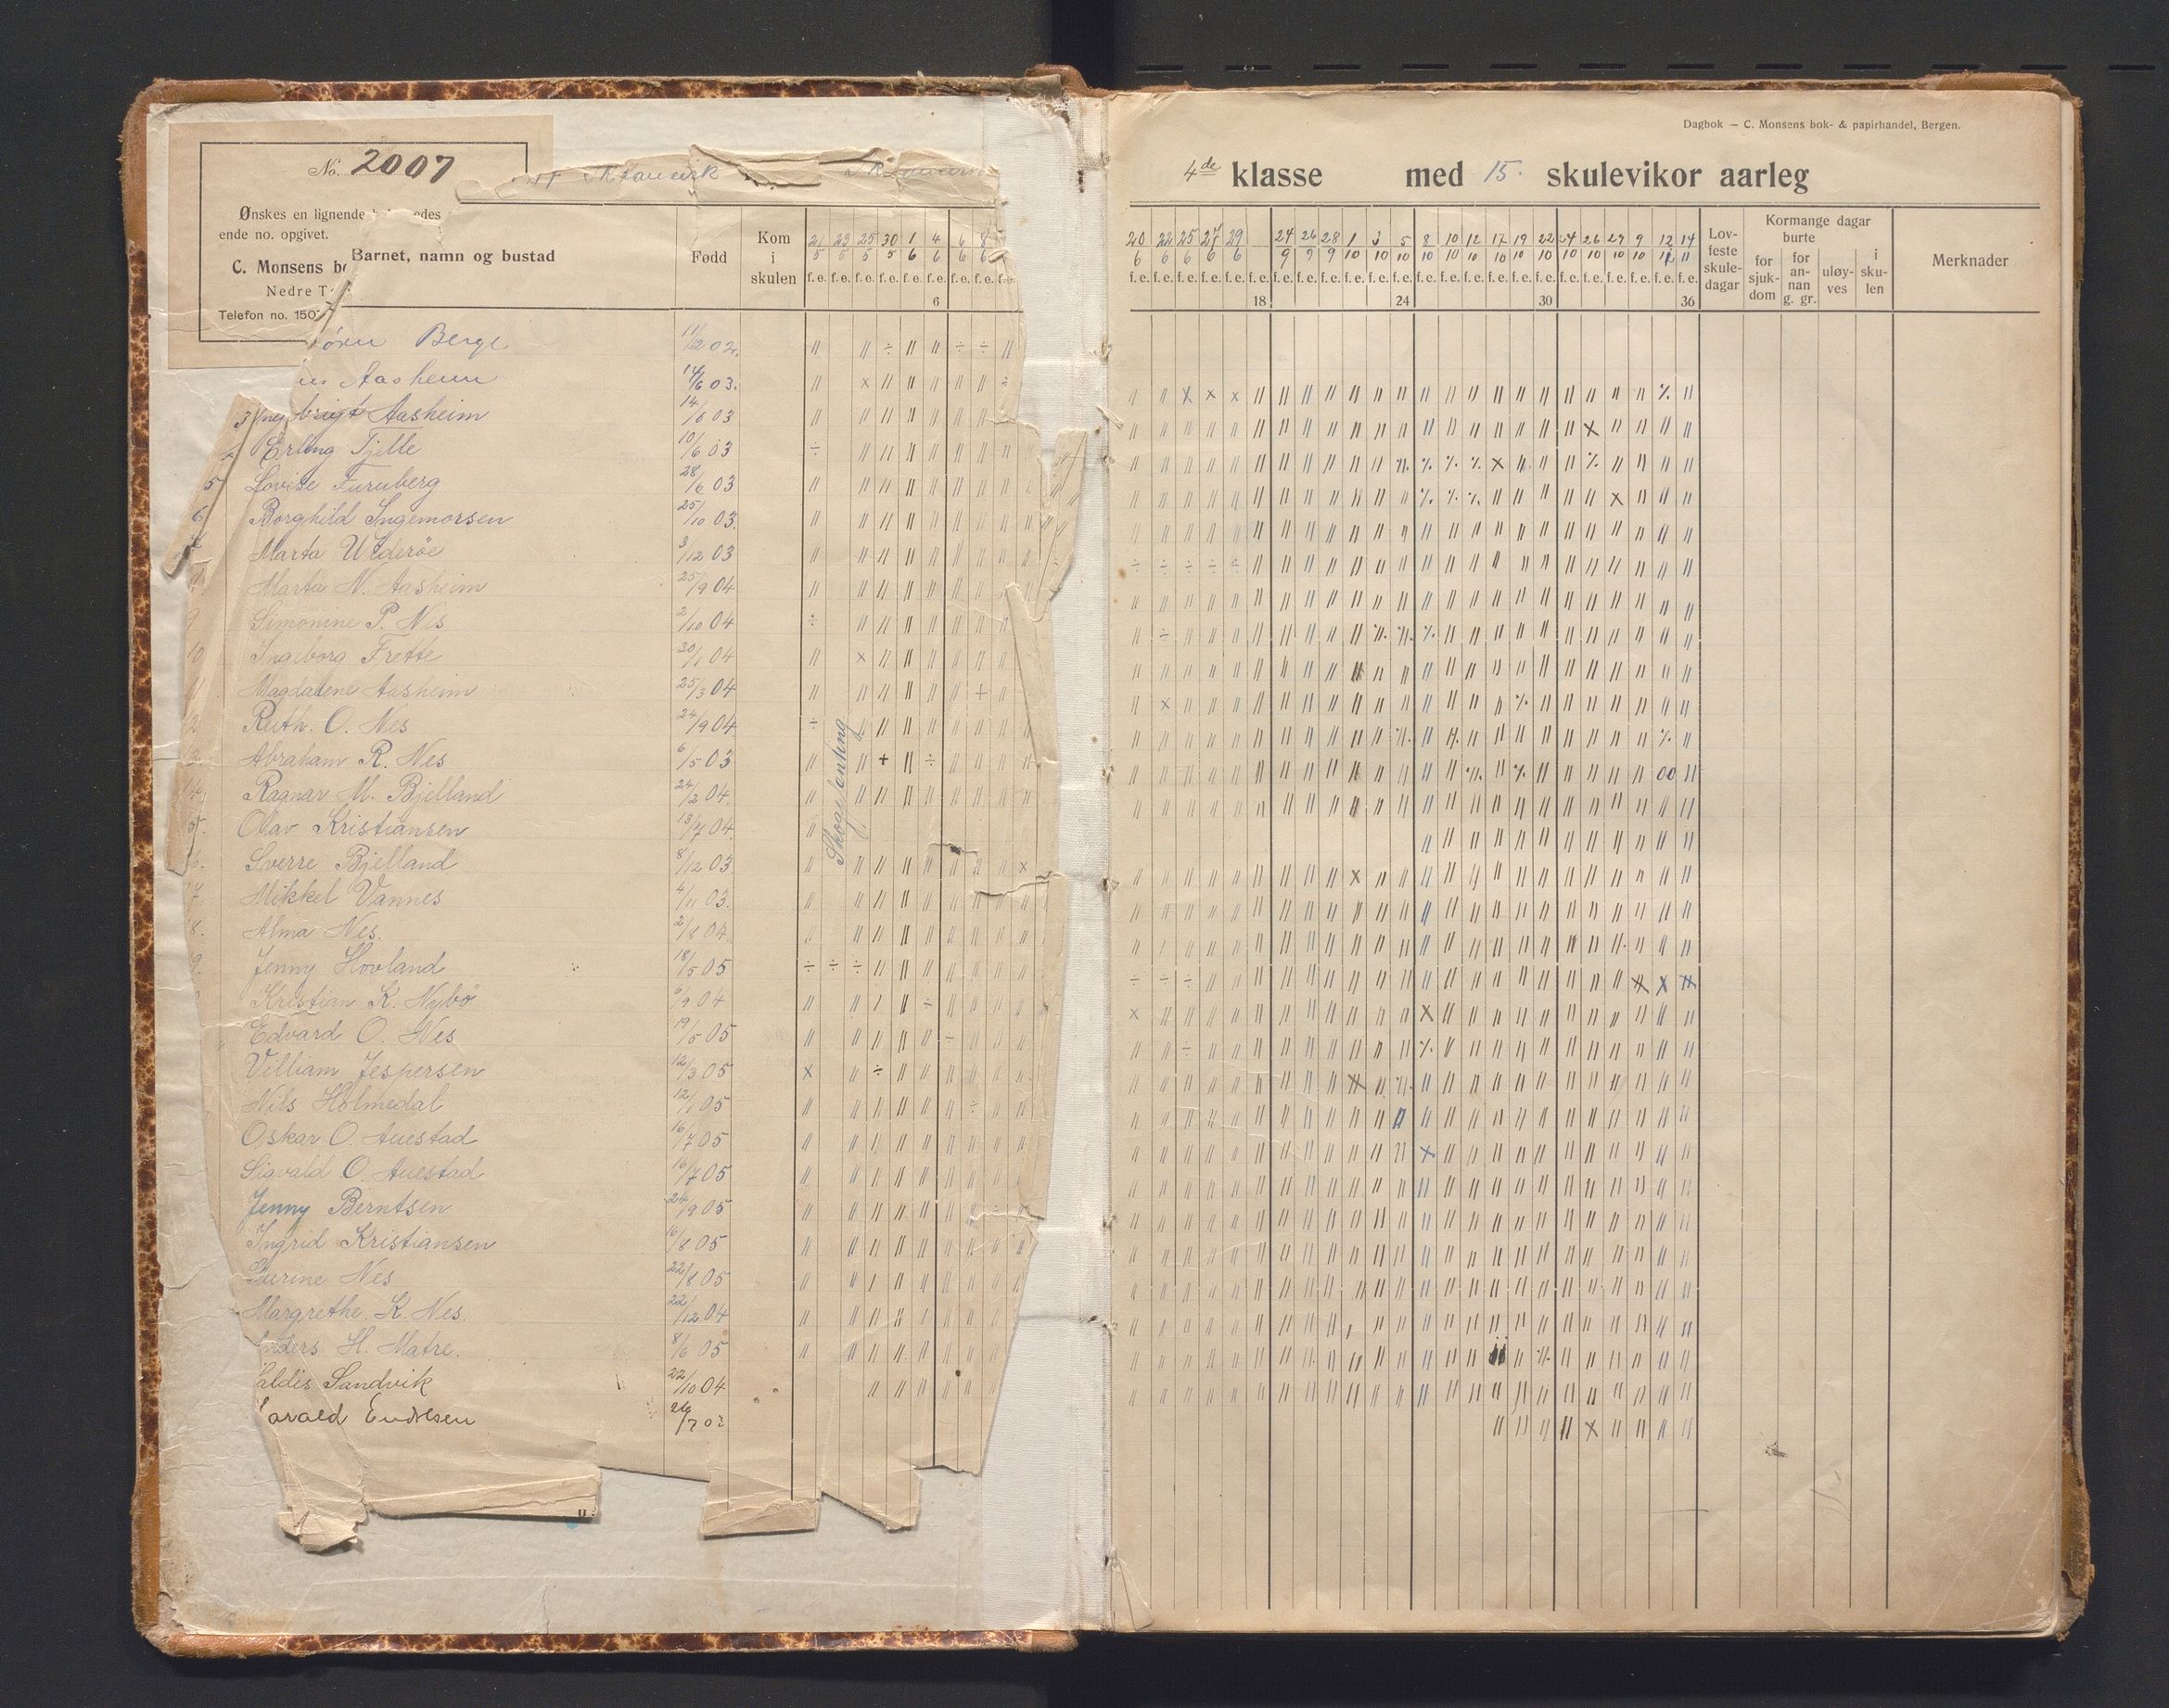 No. 2007
Ønskes en lignende
ende no. opgivet.
C. Monsens bo
Nedre T
Telefon no. 150
Barnet, namn og bustad
Født
Kom i skulen
21/5 23/5 25/5 30/5 1/6 4/6 6/6 8/6
f. e. f. e. f. e. f. e. f. e. f. e. f. e. f. e. f. e.
6
Berge 11/12 02.
Aasheim 14/6 03.
3 Aasheim 14/6 03
Erling Tjelle 10/6 03
5 Lovise Furuberg 28/6 03
6 Borghild Ingemorsen 25/10 03.
Marta Urderøe 3/12 03
Marta N. Aasheim 25/9 04
9 Simonine P. Nes 2/10 04
10 Ingeborg Frette 30/1 04
Magdalene Aasheim 25/3 04
2 Ruth. O. Nes 24/9 04
3. Abraham R. Nes 6/5 03
14 Ragnar M. Bjelland 24/2 04.
5. Olav Kristiansen 13/7 04.
6. Sverre Bjelland 8/12 03
7 Mikkel Vannes 4/11 03.
8. Alma Nes. 2/8 04.
9. Jenny Hovland 18/5 05
Kristian K. Nybø 6/9 04
Edvard O. Nes 19/5 05
Villiam Jespersen 12/3 05
Nils Holmedal 12/1 05
Oskar O. Auestad 16/7 05
Sigvald O. Auestad 16/7 05
Jenny Berntsen 24/9 05
Ingrid Kristiansen 16/8 05
Nes 22/8 05
Margrethe K. Nes. 22/12 04
nders H. Matre. 8/6 05
aldis Sandvik 22/10 04
arald Endresen 26/7 03
Skogplanting
Dagbok — C. Monsens bok- & papirhandel, Bergen.
4de klasse med 15. skulevikor aarleg
20/6 22/6 25/6 27/6 29/6 24/9 26/9 28/9 1/10 3/10 5/10 8/10 10/10 12/10 17/10 19/10 22/10 24/10 26/10 29/10 9/10 12/11 14/11
f. e. f. e. f. e. f. e. f. e. f. e. f. e. f. e. f. e. f. e. f. e. f. e. f. e. f. e. f. e. f. e. f. e. f. e. f. e. f. e. f. e. f. e. f. e. f. e.
18 24 30 36
Lov-feste skule-dagar
Kormange dagar burte
for sjuk-dom
for an-nan g. gr.
uløy-ves
i sku-len
Merknader